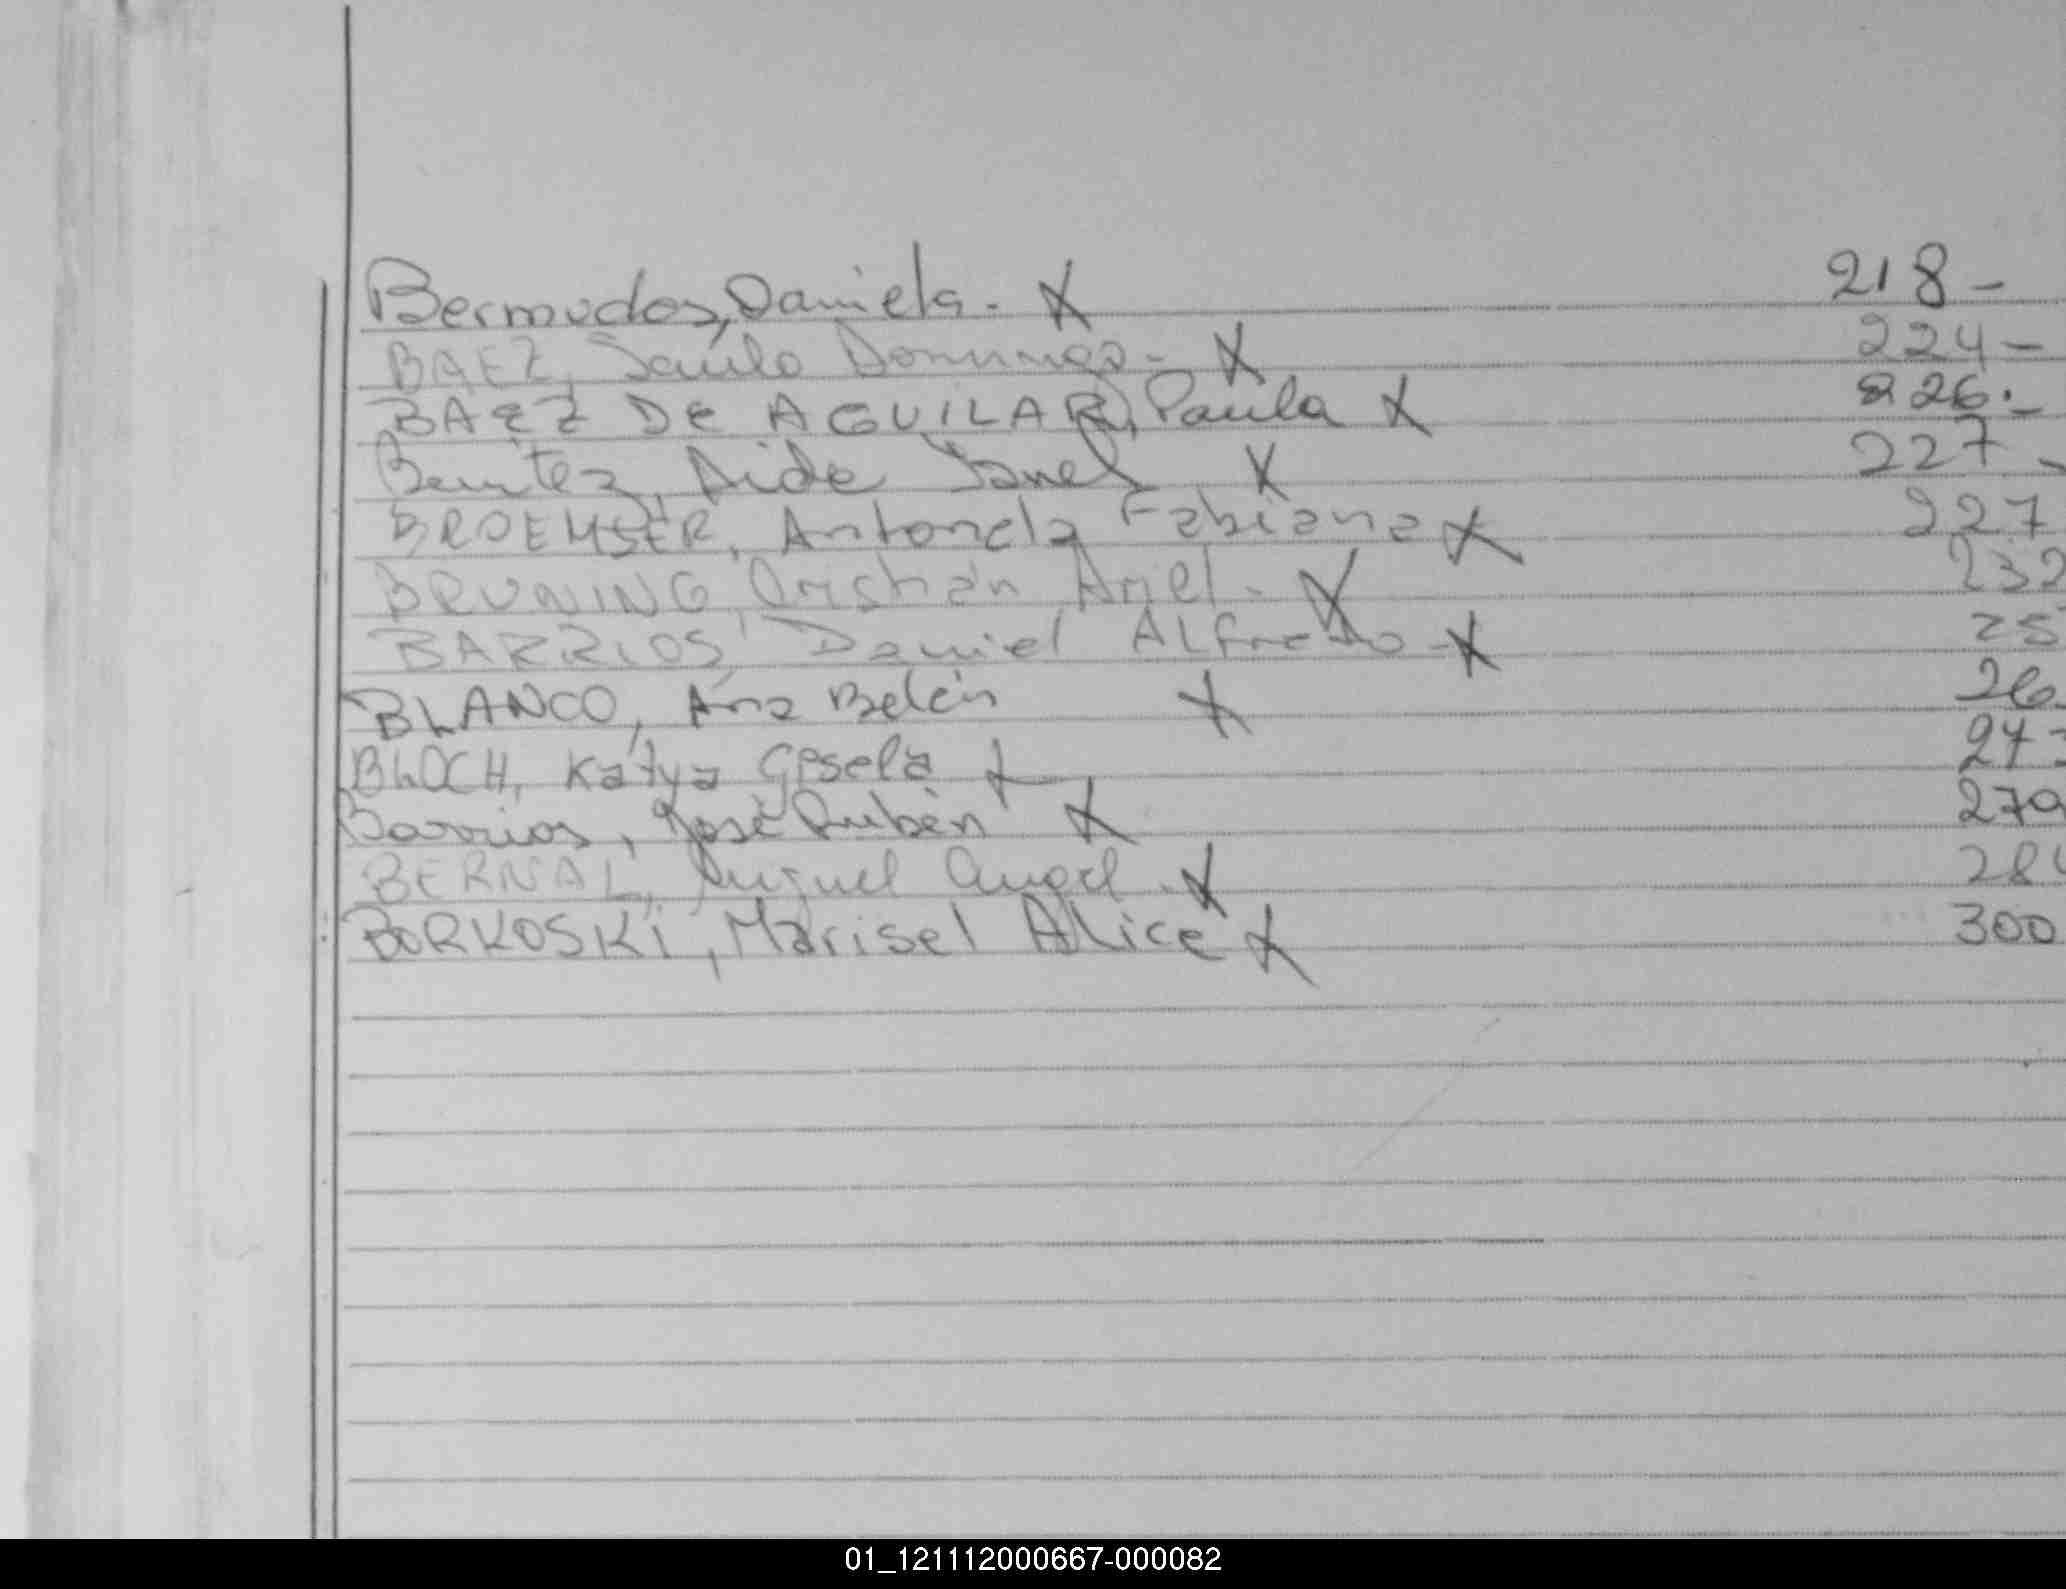 Bermudos, Daniela. X 218-
BAEZ, Saulo Domingo- X 224-
BAEZ DE AGUILAR, Paula X 226.-
Benitez, Aide Yanel X 227-
BROEMSER, Antonela Fabiana X 227
BRUNING, Cristian Ariel. X 232
BARRIOS, Daniel ALfredo- X 25
BLANCO, Ana Belén X 26
BLOCH, Katya Gisela X 27
Barrios, José Rubén X 279
BERNAL, Miguel Angel. X 28
BORKOSKI, Marisel Alice X 300
01_121112000667-000082